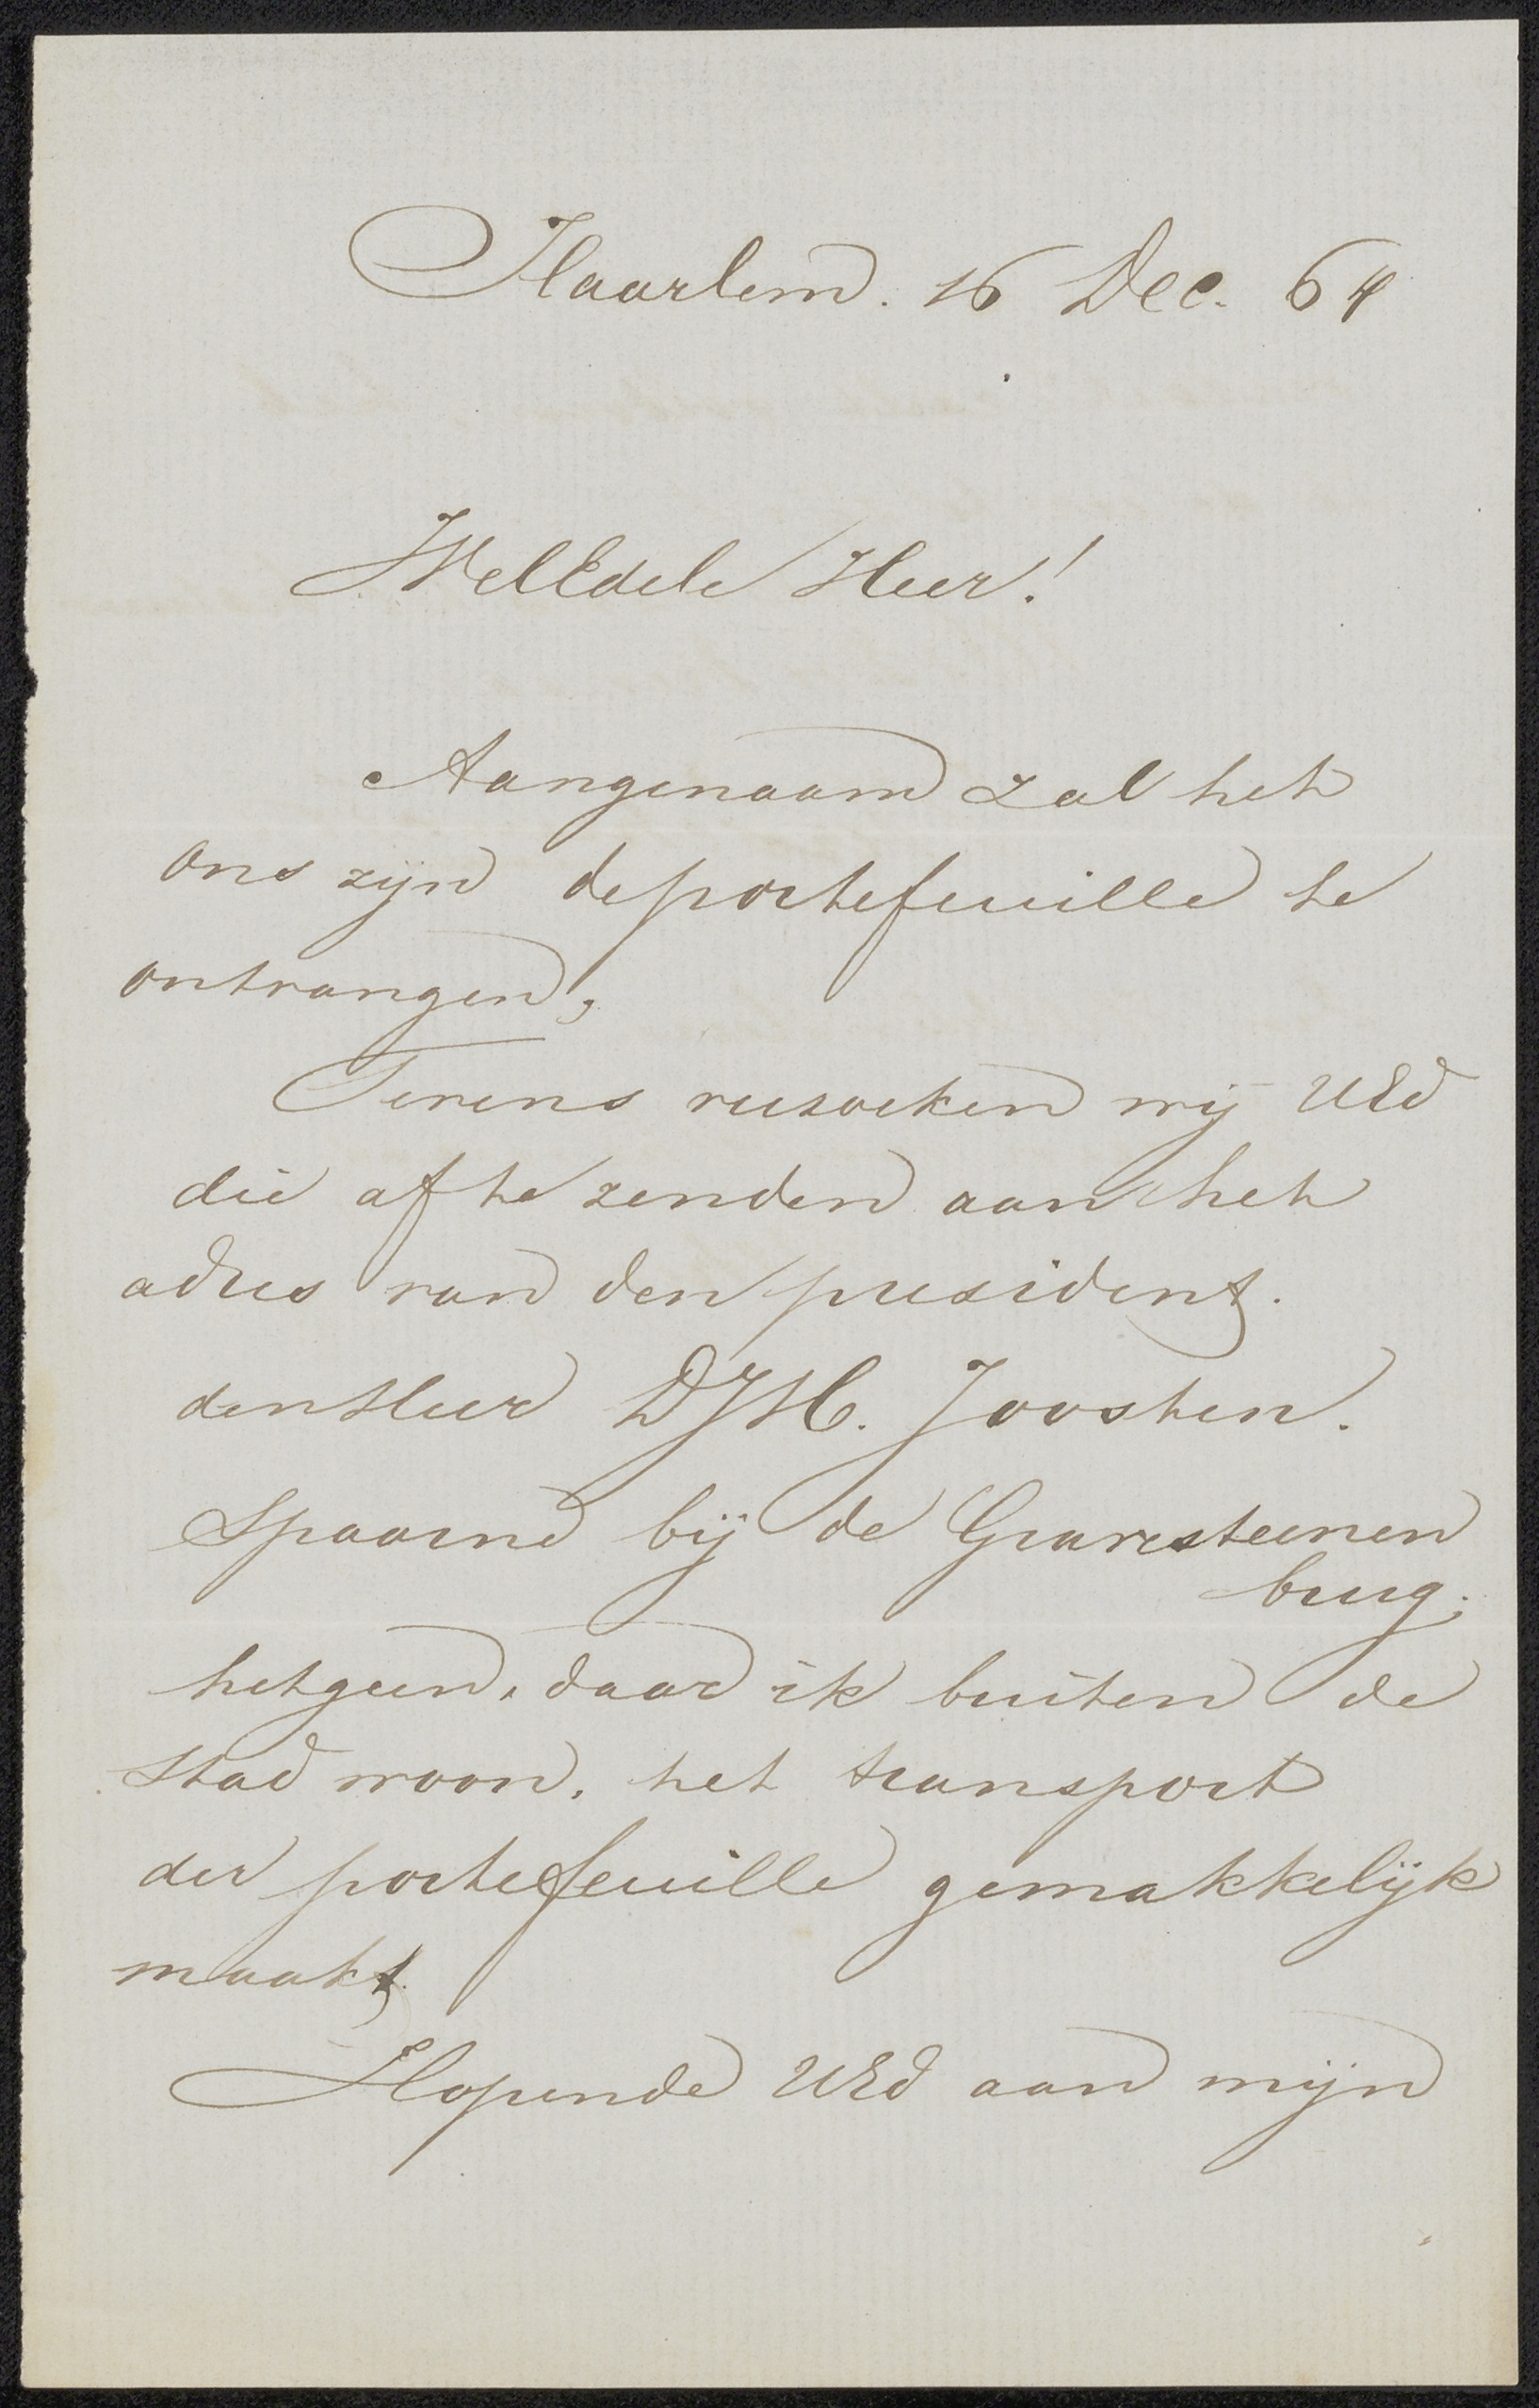 Haarlem. 16 Dec. 64
WelEdele Heer!
Aangenaam zal het
ons zijn de portefeuille te
ontvangen,
Tevens verzoeken wij UEd
die af te zenden aan het
adres van den president.
den Heer DJH. Joosten.
Spaarne bij de Gravesteenen
brug.
hetgeen, daar ik buiten de
stad woon, het transport
der portefeuille gemakkelijk
maakt.
Hopende UEd aan mijn